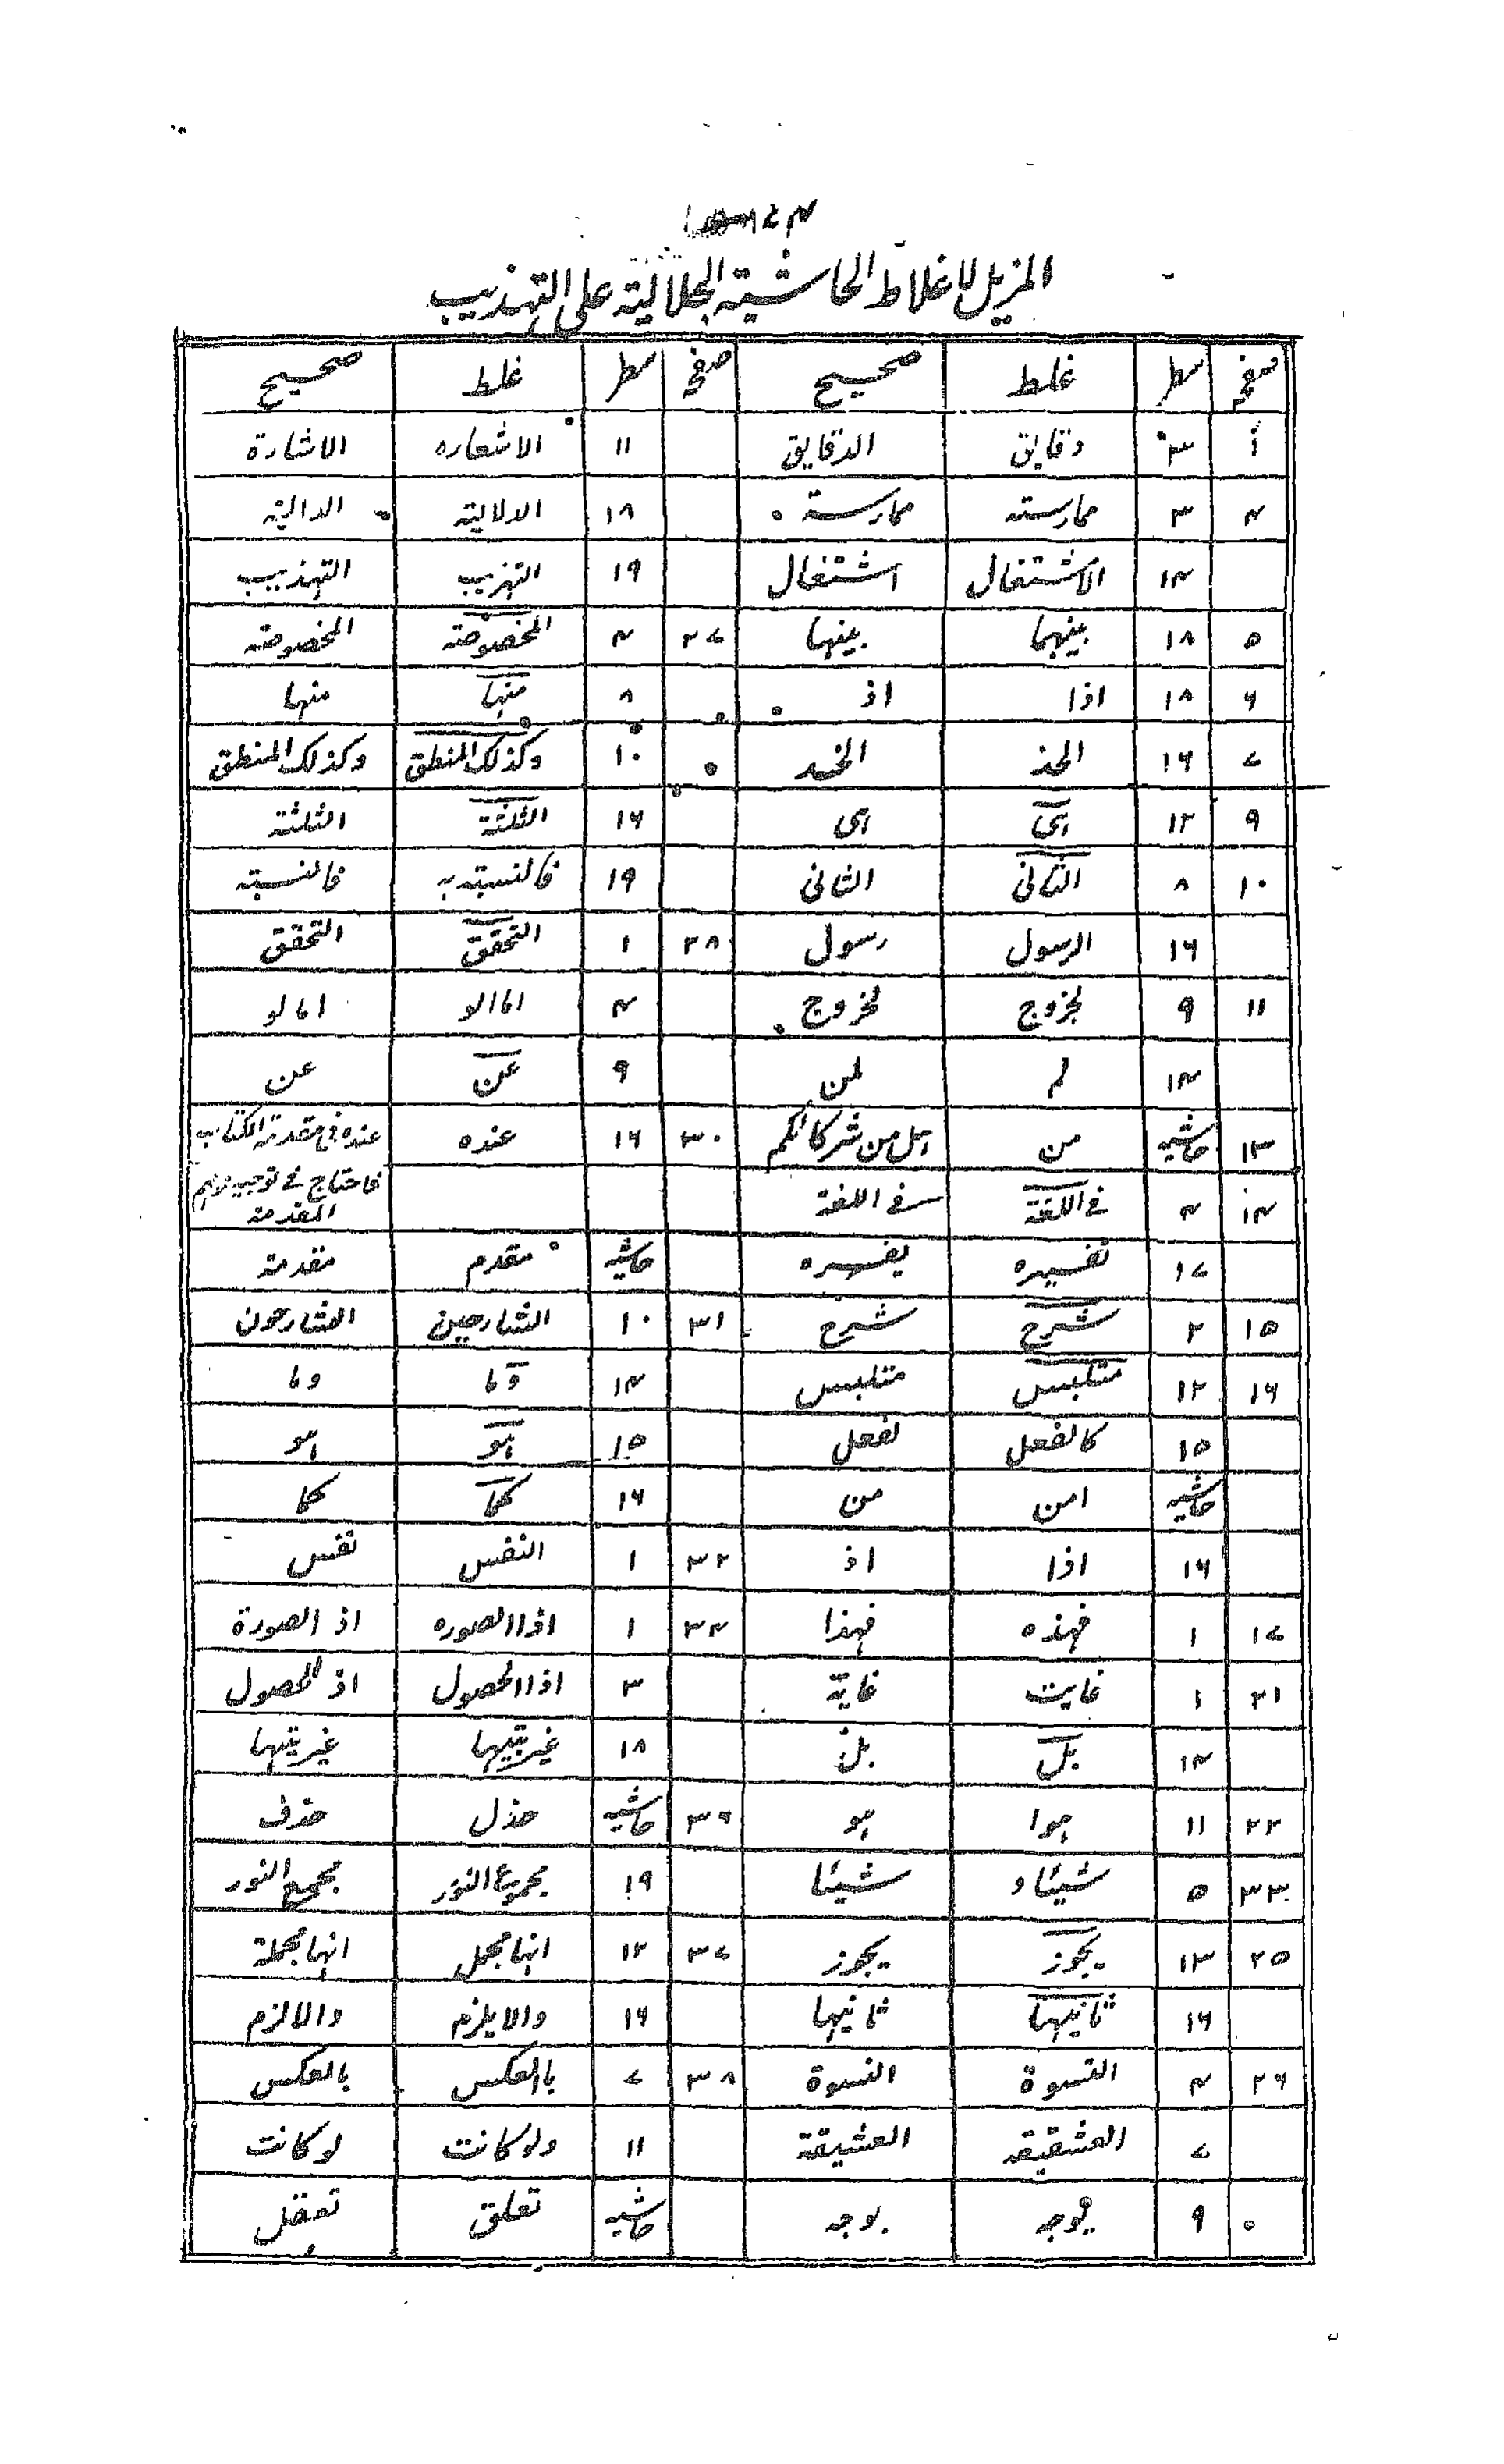 المزيل لاغلاط الحاشية الجلالية على التهذيب
صفحه سطر غلط صحيح صفحه سطر غلط صحيح
۱ ۳ دقايق الدقايق ۱۱ الاشعاره الاشارة
۴ ۳ ممارسته ممارسة ۱۸ الدلالية الدالية
۱۴ الاشتغال اشتغال ۱۹ التهزيب التهذيب
۵ ۱۸ بينهما بينها ۲۷ ۴ المخصوصة المخصوصة
۶ ۱۸ اذا اذ ۸ منها منها
۷ ۱۶ الحذ الحمد ۱۰ وكذلك المنطق وكذلك المنطق
۹ ۱۲ اى اى ۱۶ الثلثة الثلثة
۱۰ ۸ الثانى الثانى ۱۹ فالنسبة به فالنسبة
۱۶ الرسول رسول ۲۸ ۱ التحقق التحقق
۱۱ ۹ بخروج لخروج ۴ اما الو اما لو
۱۴ لم لمن ۹ عن عن
۱۳ حاشيه من هل من شركائكم ۳۰ ۱۶ عنده عنده فى مقدمة الكتاب
۱۴ ۴ فى اللغة فى اللغة فاحتاج فى توجيه المقدمة
۱۷ تفسيره يفسره حاشيه مقدم مقدمة
۱۵ ۲ شرح شرح ۳۱ ۱۰ الشارحين الشارحون
۱۶ ۱۲ متلبس متلبس ۱۴ وما وما
۱۵ كالفعل لفعل ۱۵ هو هو
حاشيه امن من ۱۶ كما كما
۱۶ اذا اذ ۳۲ ۱ النفس نفس
۱۷ ۱ فهذه فهذا ۳۴ ۱ اذا الصوره اذ الصورة
۲۱ ۱ غايت غاية ۳ اذا الحصول اذ الحصول
۱۴ بل بل ۱۸ غيريتيها غيريتها
۲۲ ۱۱ هوا هو ۳۶ حاشيه حذل حذف
۲۳ ۵ شيئا و شيئا ۱۹ مجموع النور مجمع النور
۲۵ ۱۳ يجوز يجوز ۳۷ ۱۲ انها مجمل انها مجملة
۱۶ ثانيها ثانيها ۱۶ والا يلزم والا لزم
۲۶ ۴ القسوة النسوة ۳۸ ۷ باالعكس بالعكس
۷ العشقيقه العشيقة ۱۱ ولو كانت لو كانت
۹ يوجه بوجه حاشيه تعلق تعقل